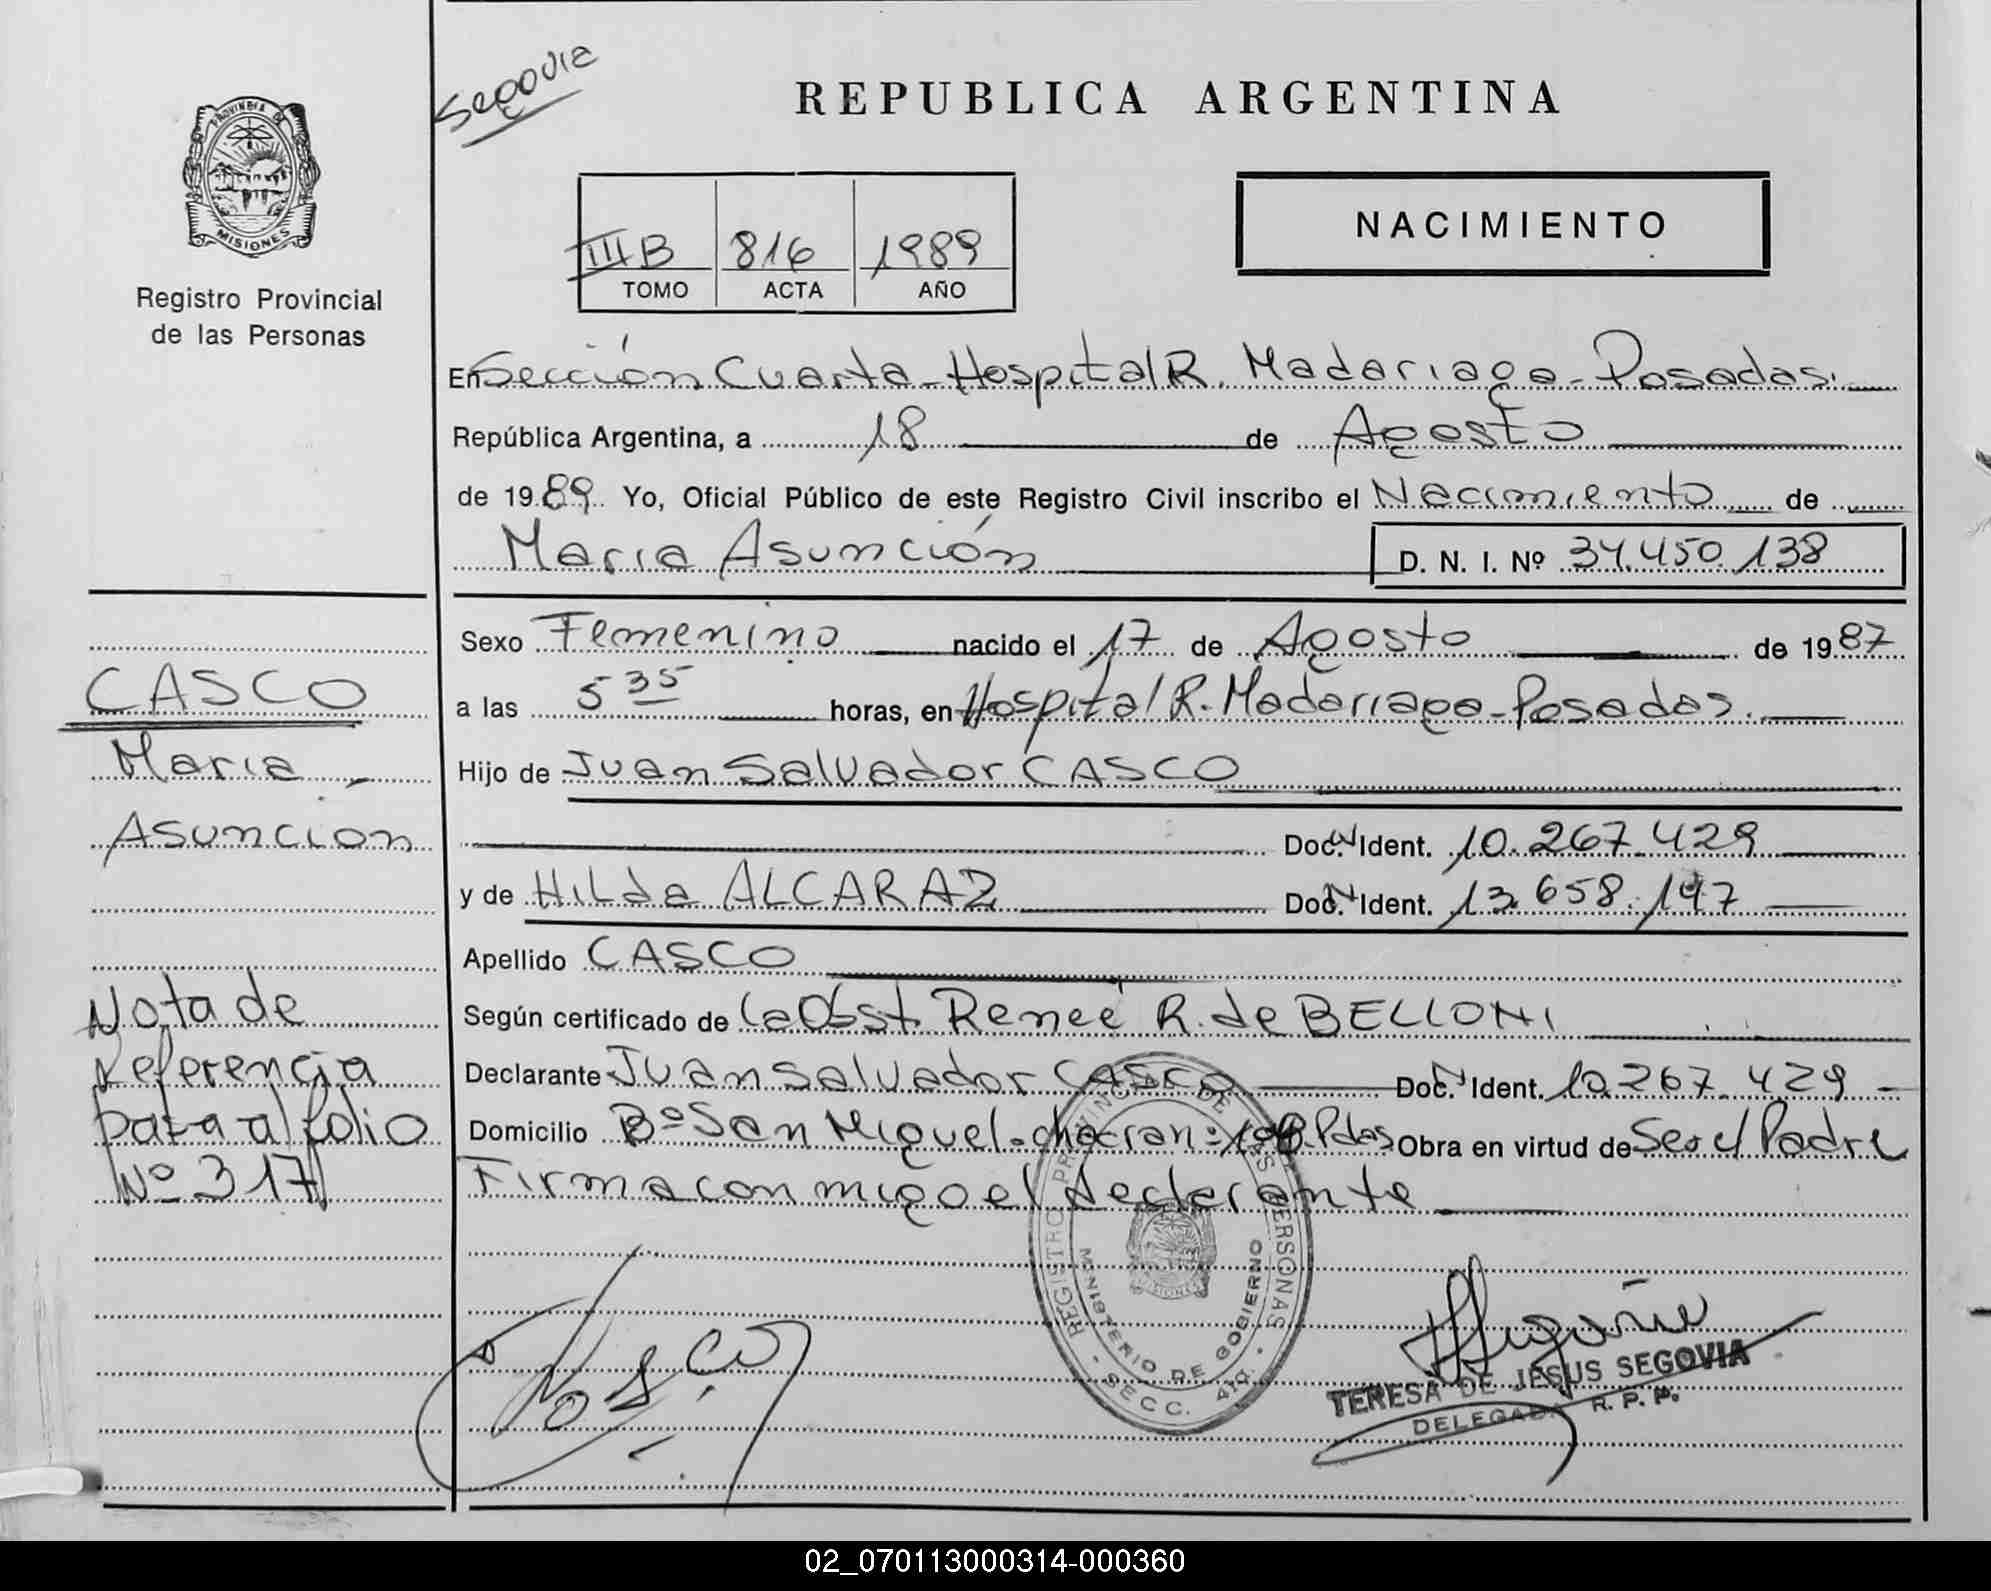 Segovia
REPUBLICA ARGENTINA
PROVINCIA DE MISIONES
Registro Provincial
de las Personas
NACIMIENTO
III B 816 1989
TOMO ACTA AÑO
En Sección Cuarta - Hospital R. Madariaga - Posadas.
República Argentina, a 18 de Agosto
de 1989. Yo, Oficial Público de este Registro Civil inscribo el Nacimiento de
Maria Asunción D. N. I. Nº 34.450.138
Sexo Femenino nacido el 17 de Agosto de 1987
a las 5 35 horas, en Hospital R. Madariaga - Posadas.
Hijo de Juan Salvador CASCO
Doc. N Ident. 10.267.429
y de Hilda ALCARAZ Doc. N Ident. 13.658.147
Apellido CASCO
Según certificado de la Obst. Reneé R. de BELLONI
Declarante Juan Salvador CASCO Doc. N Ident. 10.267.429
Domicilio Bº San Miguel - chacra nº Pdas Obra en virtud de Ser el Padre
Firma conmigo el declarante
CASCO
Maria
Asunción
Nota de
Referencia
pasa al folio
Nº 317
REGISTRO PROVINCIAL DE LAS PERSONAS
MINISTERIO DE GOBIERNO
SECC. 4ta.
Casco
TERESA DE JESUS SEGOVIA
DELEGADA R. P. P.
02_070113000314-000360